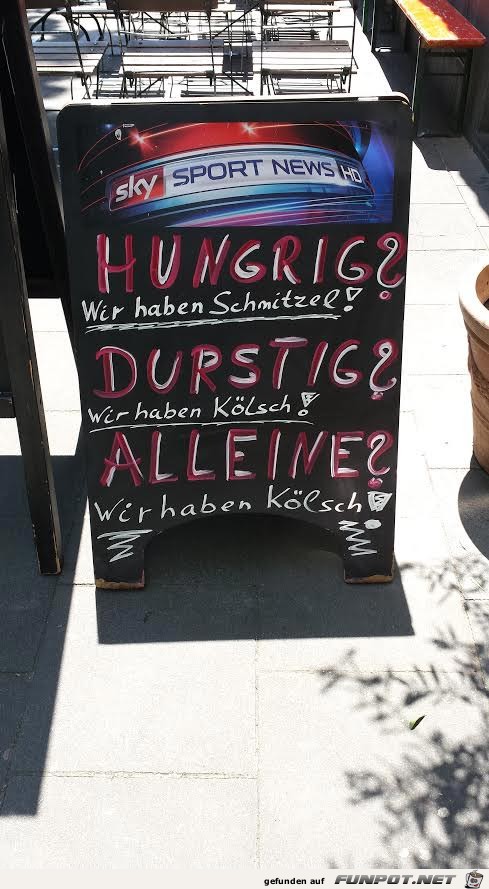 sky SPORT NEWS HD
HUNGRIG?
Wir haben Schmitzel!
DURSTIG?
Wir haben Kölsch!
ALLEINE?
Wir haben Kölsch!
gefunden auf FUNPOT.NET